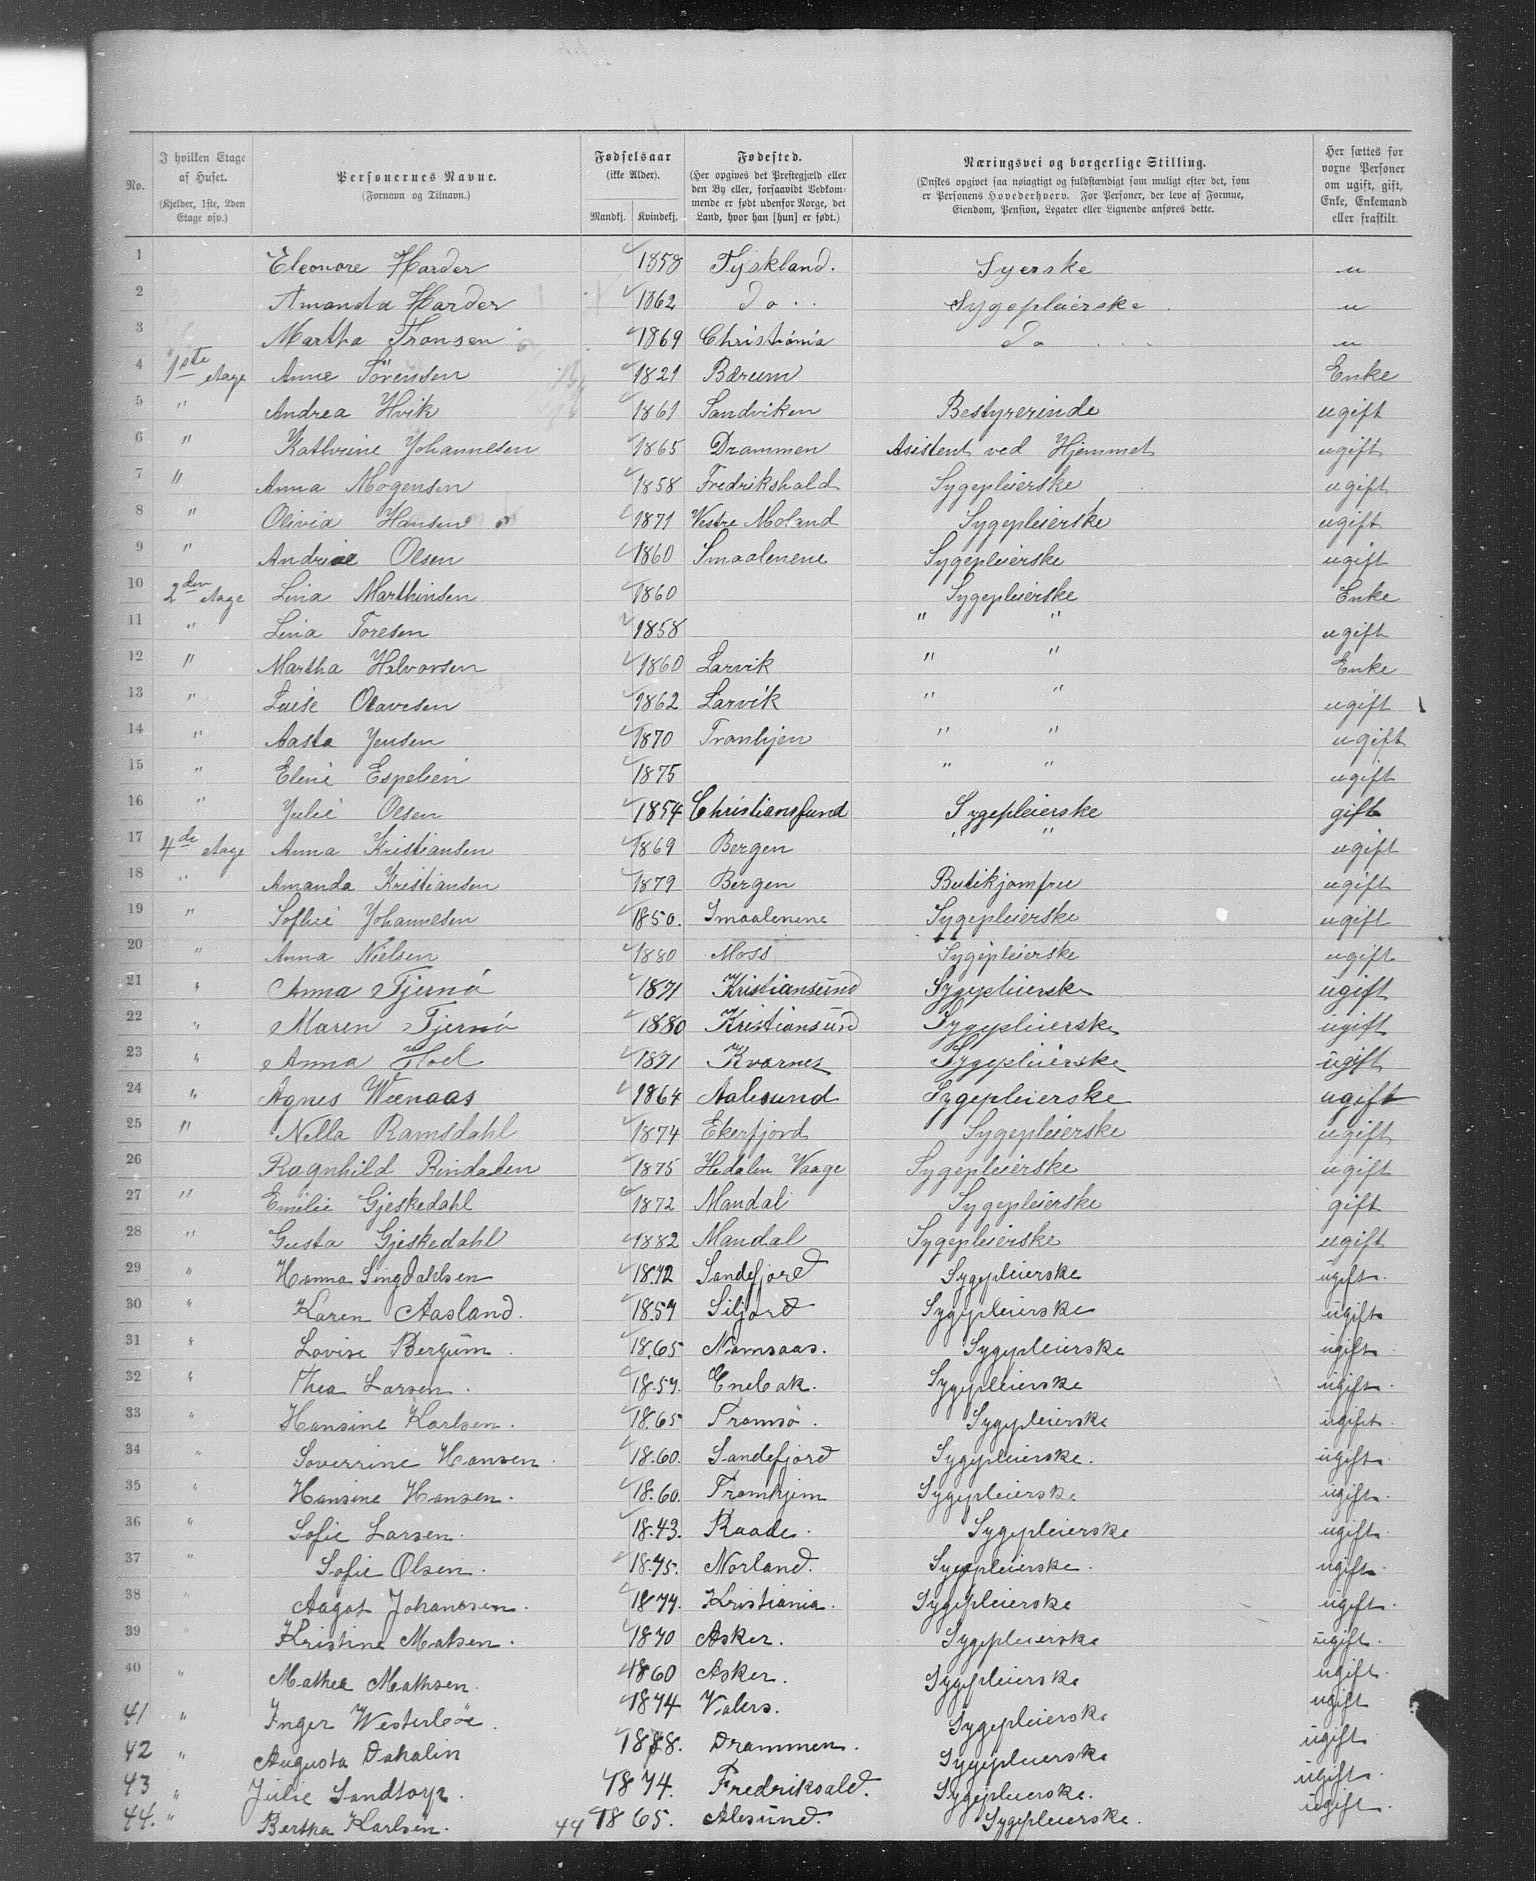 No. | I hvilken Etage af Huset. (Kjelder, 1ste, 2den Etage osv.) | Personernes Navne. (Fornavn og Tilnavn.) | Fødselsaar (ikke Alder). Mandkj. Kvindekj. | Fødested. (Her opgives det Prestegjæld eller den By eller, forsaavidt Vedkommende er født udenfor Norge, det Land, hvor han [hun] er født.) | Næringsvei og borgerlige Stilling. (Ønskes opgivet saa nøiagtigt og fuldstændigt som muligt efter det, som er Personens Hovederhverv. For Personer, der leve af Formue, Eiendom, Pension, Legater eller Lignende anføres dette. | Her sættes for voxne Personer om ugift, gift, Enke, Enkemand eller fraskilt.
1 Eleonore Harder 1858 Tyskland. Syerske u
2 Amanda Harder 1862 do.. Sygepleierske u
3 Martha Fransen 1869 Christiania do u
4 1ste etage Anne Sörensen 1821 Bærum Enke
5 " Andrea Hvik 1861 Sandviken Bestyrerinde ugift
6 " Kathrine Johannesen 1865 Drammen Asistent ved Hjemmet ugift
7 " Anna Mogensen 1858 Fredrikshald Sygepleierske ugift
8 " Olivia Hansen 1871 Vestre Moland Sygepleierske ugift
9 " Olsen 1860 Smaalenene Sygepleierske ugift
10 2den etage Lina Marthinsen 1860 Sygepleierske Enke
11 " Lina Toresen 1858 " " ugift
12 " Martha Halvorsen 1860 Larvik " " Enke
13 " Luise Olavesen 1862 Larvik " " ugift
14 " Aasta Jensen 1870 Tronhjen " " ugift
15 " Eline Espelien 1875 " " ugift
16 " Julie Olsen 1854 Christiansund Sygepleierske gift
17 4de etage Anna Kristiansen 1869 Bergen " " ugift
18 " Amanda Kristiansen 1879 Bergen Butikjomfru ugift
19 " Sofhie Johannesen 1850. Smaalenene Sygepleierske ugift
20 " Anna Nielsen 1880 Moss Sygepleierske ugift
21 " Anna Tjernö 1871 Kristiansund Sygepleierske ugift
22 " Maren Tjernö 1880 Kristiansund Sygepleierske ugift
23 " Anna Hoel 1871 Kvarnes Sygepleierske ugift
24 " Agnes Weenaas 1864 Aalesund Sygepleierske ugift
25 " Nella Ramsdahl 1874 Ekerfjord Sygepleierske ugift
26 Ragnhild Rindalen 1875 Hedalen Vaage Sygepleierske ugift
27 " Emelie Gjeskedahl 1872 Mandal Sygepleierske gift
28 " Gusta Gjeskedahl 1882 Mandal Sygepleierske ugift
29 " Hanna Singdahlsen 1872 Sandefjord Sygepleierske ugift.
30 " Karen Aasland. 1857 Siljord Sygepleierske ugift
31 " Lovise Bergum. 1865 Namsaas. Sygepleierske ugift
32 " Thea Larsen. 1857. Enebak. Sygepleierske ugift.
33 " Hansine Karlsen. 1865 Tromsö. Sygepleierske ugift.
34 " Soverrine Hansen. 1860. Sandefjord Sygepleierske. ugift.
35 " Hansine Hansen. 1860. Tromhjem Sygepleierske ugift.
36 " Sofie Larsen. 1843. Raade. Sygepleierske ugift.
37 " Sofie Olsen. 1875. Norland. Sygepleierske. ugift.
38 " Aagot Johanesen. 1877. Kristiania. Sygepleierske ugift.
39 " Kristine Matsen. 1870 Asker. Sygepleierske ugift.
40 " Mathea Mathsen. 1860 Asker. Sygepleierske ugift.
41 " Inger Westerløe. 1874 Valers. Sygepleierske ugift
42 " Augusta Dahalin Drammen. Sygepleierske ugift.
43 " Julie Sandtorp. 1874. Fredriksald. Sygepleierske. ugift.
44. " Bertha Karlsen. 44 1865. Alesund. Sygepleierske. ugift.